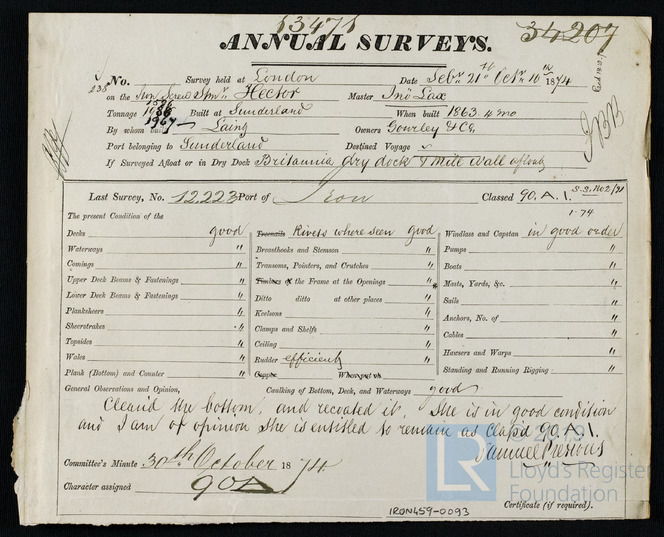 13471
34207
ANNUAL SURVEYS.
238 No. Survey held at London Date Sepr 21st Octr 10th 1874
on the Iron Screw Stmr Hector Master Jno Lax
Tonnage 1526 1436 1967 Built at Sunderland When built 1863. 4 mo
By whom built Laing Owners Gourley & Co,
Port belonging to Sunderland Destined Voyage
If Surveyed Afloat or in Dry Dock Britannia dry dock & Mill wall afloat
Last Survey, No. 12,223 Port of Iron Classed 90. A. 1. S.S. No 2/71
1-74
The present Condition of the
Decks good Treenails Rivets where seen good Windlass and Capstan in good order
Waterways " Breasthooks and Stemson " Pumps "
Comings " Transoms, Pointers, and Crutches " Boats "
Upper Deck Beams & Fastenings " Timbers of the Frame at the Openings " Masts, Yards, &c. "
Lower Deck Beams & Fastenings " Ditto ditto at other places " Sails "
Planksheers " Keelsons " Anchors, No. of "
Sheerstrakes " Clamps and Shelfs " Cables "
Topsides " Ceiling " Hawsers and Warps "
Wales " Rudder efficient " Standing and Running Rigging "
Plank (Bottom) and Counter " Copper When put on
General Observations and Opinion, Caulking of Bottom, Deck, and Waterways good
Clean'd the bottom, and recoated it. She is in good condition
and I am of opinion she is entitled to remain as Class'd 90. A. 1.
Samuel Presious
Committee's Minute 30th October 1874
Character assigned 90A
Certificate (if required).
IRON459-0093
© 2019
LR
Lloyd's Register
Foundation